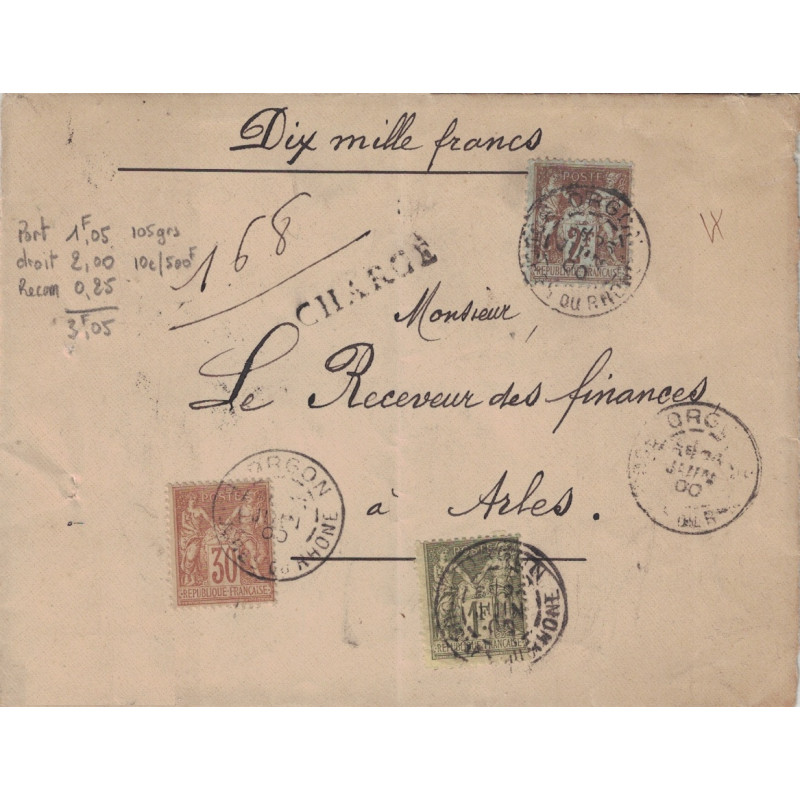 Dix mille francs
POSTE
2F
REPUBLIQUE FRANÇAISE
ORGON
DU RHONE
Port 1F,05 105grs
droit 2,00 10c/500F
Recom 0,25
3F,05
168
CHARGÉ
Monsieur,
Le Receveur des finances,
à Arles.
POSTE
30
REPUBLIQUE FRANÇAISE
ORGON
DU RHONE
1F
REPUBLIQUE FRANÇAISE
JUIN
RHONE
JUIN
00